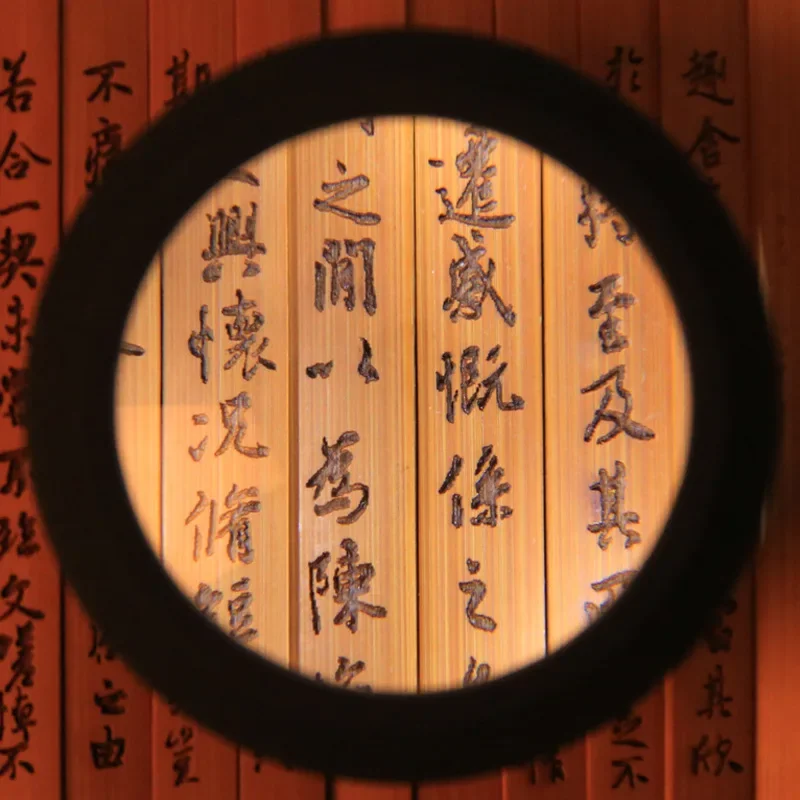 趣舍
其欣
於
之不
將至及其
遷感慨係之
之間以為陳
興懷況脩短
期
豈
不痛
之由
若合一契未嘗不臨文嗟悼不